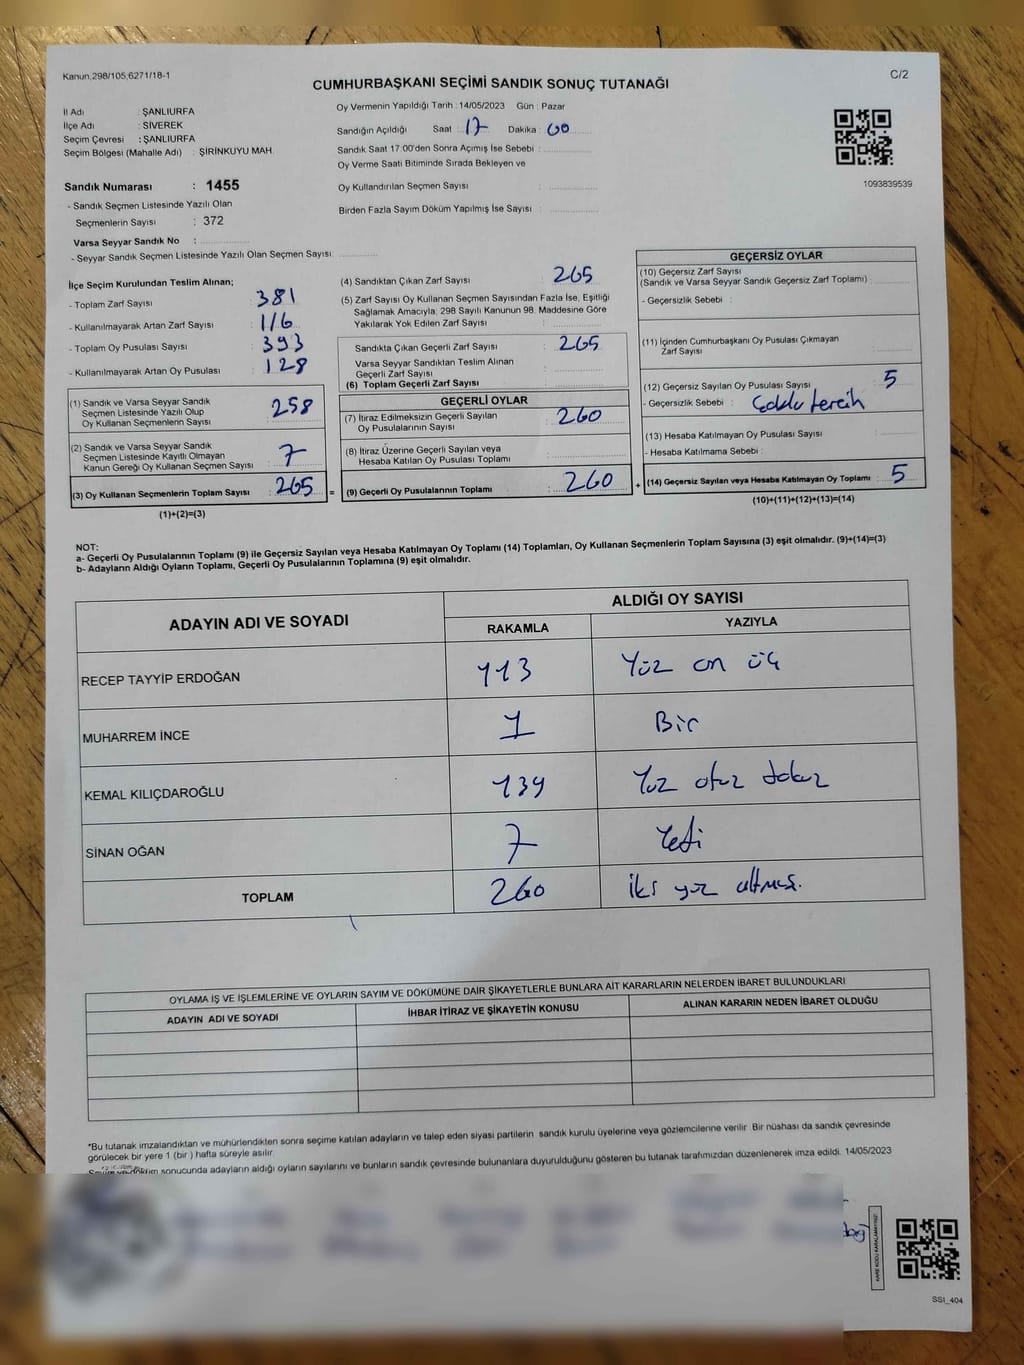 Kanun,298/105,6271/18-1
C/2
CUMHURBAŞKANI SEÇİMİ SANDIK SONUÇ TUTANAĞI
İl Adı : ŞANLIURFA
İlçe Adı : SİVEREK
Seçim Çevresi : ŞANLIURFA
Seçim Bölgesi (Mahalle Adı) : ŞİRİNKUYU MAH.
Sandık Numarası : 1455
- Sandık Seçmen Listesinde Yazılı Olan
Seçmenlerin Sayısı : 372
Varsa Seyyar Sandık No :
- Seyyar Sandık Seçmen Listesinde Yazılı Olan Seçmen Sayısı:
Oy Vermenin Yapıldığı Tarih : 14/05/2023 Gün : Pazar
Sandığın Açıldığı Saat : 17 Dakika : 00
Sandık Saat 17:00'den Sonra Açımış İse Sebebi :
Oy Verme Saati Bitiminde Sırada Bekleyen ve
Oy Kullandırılan Seçmen Sayısı :
Birden Fazla Sayım Döküm Yapılmış İse Sayısı :
1093839539
İlçe Seçim Kurulundan Teslim Alınan;
- Toplam Zarf Sayısı : 381
- Kullanılmayarak Artan Zarf Sayısı : 116
- Toplam Oy Pusulası Sayısı : 393
- Kullanılmayarak Artan Oy Pusulası : 128
(1) Sandık ve Varsa Seyyar Sandık
Seçmen Listesinde Yazılı Olup
Oy Kullanan Seçmenlerin Sayısı : 258
(2) Sandık ve Varsa Seyyar Sandık
Seçmen Listesinde Kayıtlı Olmayan
Kanun Gereği Oy Kullanan Seçmen Sayısı : 7
(3) Oy Kullanan Seçmenlerin Toplam Sayısı : 265
(1)+(2)=(3)
(4) Sandıktan Çıkan Zarf Sayısı : 265
(5) Zarf Sayısı Oy Kullanan Seçmen Sayısından Fazla İse, Eşitliği
Sağlamak Amacıyla, 298 Sayılı Kanunun 98. Maddesine Göre
Yakılarak Yok Edilen Zarf Sayısı :
Sandıkta Çıkan Geçerli Zarf Sayısı : 265
Varsa Seyyar Sandıktan Teslim Alınan
Geçerli Zarf Sayısı :
(6) Toplam Geçerli Zarf Sayısı :
GEÇERLİ OYLAR
(7) İtiraz Edilmeksizin Geçerli Sayılan
Oy Pusulalarının Sayısı : 260
(8) İtiraz Üzerine Geçerli Sayılan veya
Hesaba Katılan Oy Pusulası Toplamı :
= (9) Geçerli Oy Pusulalarının Toplamı : 260
GEÇERSİZ OYLAR
(10) Geçersiz Zarf Sayısı
(Sandık ve Varsa Seyyar Sandık Geçersiz Zarf Toplamı) :
- Geçersizlik Sebebi :
(11) İçinden Cumhurbaşkanı Oy Pusulası Çıkmayan
Zarf Sayısı :
(12) Geçersiz Sayılan Oy Pusulası Sayısı : 5
- Geçersizlik Sebebi : tercih
(13) Hesaba Katılmayan Oy Pusulası Sayısı :
- Hesaba Katılmama Sebebi :
+ (14) Geçersiz Sayılan veya Hesaba Katılmayan Oy Toplamı : 5
(10)+(11)+(12)+(13)=(14)
NOT:
a- Geçerli Oy Pusulalarının Toplamı (9) ile Geçersiz Sayılan veya Hesaba Katılmayan Oy Toplamı (14) Toplamları, Oy Kullanan Seçmenlerin Toplam Sayısına (3) eşit olmalıdır. (9)+(14)=(3)
b- Adayların Aldığı Oyların Toplamı, Geçerli Oy Pusulalarının Toplamına (9) eşit olmalıdır.
ADAYIN ADI VE SOYADI
ALDIĞI OY SAYISI
RAKAMLA YAZIYLA
RECEP TAYYİP ERDOĞAN 113 Yüz on üç
MUHARREM İNCE 1 Bir
KEMAL KILIÇDAROĞLU 139 Yüz otuz dokuz
SİNAN OĞAN 7 Yedi
TOPLAM 260 iki yüz altmış.
OYLAMA İŞ VE İŞLEMLERİNE VE OYLARIN SAYIM VE DÖKÜMÜNE DAİR ŞİKAYETLERLE BUNLARA AİT KARARLARIN NELERDEN İBARET BULUNDUKLARI
ADAYIN ADI VE SOYADI İHBAR İTİRAZ VE ŞİKAYETİN KONUSU ALINAN KARARIN NEDEN İBARET OLDUĞU
*Bu tutanak imzalandıktan ve mühürlendikten sonra seçime katılan adayların ve talep eden siyasi partilerin sandık kurulu üyelerine veya gözlemcilerine verilir. Bir nüshası da sandık çevresinde
görülecek bir yere 1 (bir ) hafta süreyle asılır.
döküm sonucunda adayların aldığı oyların sayılarını ve bunların sandık çevresinde bulunanlara duyurulduğunu gösteren bu tutanak tarafımızdan düzenlenerek imza edildi. 14/05/2023
KARE KODU KARALAMAYINIZ!
SSI_404